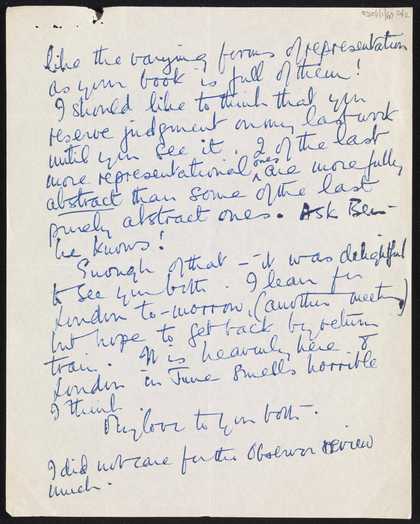 like the varying forms of representation
as your book is full of them!
I should like to think that you
reserve judgment on my last work
until you see it. 2 of the last
more representational ones are more fully
abstract than some of the last
purely abstract ones. Ask Ben –
he knows!
Enough of that – it was delightful
to see you both. I leave for
London to-morrow, (another meeting)
but hope to get back by return
train. It is heavenly here &
London in June smells horrible
I think.
My love to you both.
I did not care for the Observer review
much.